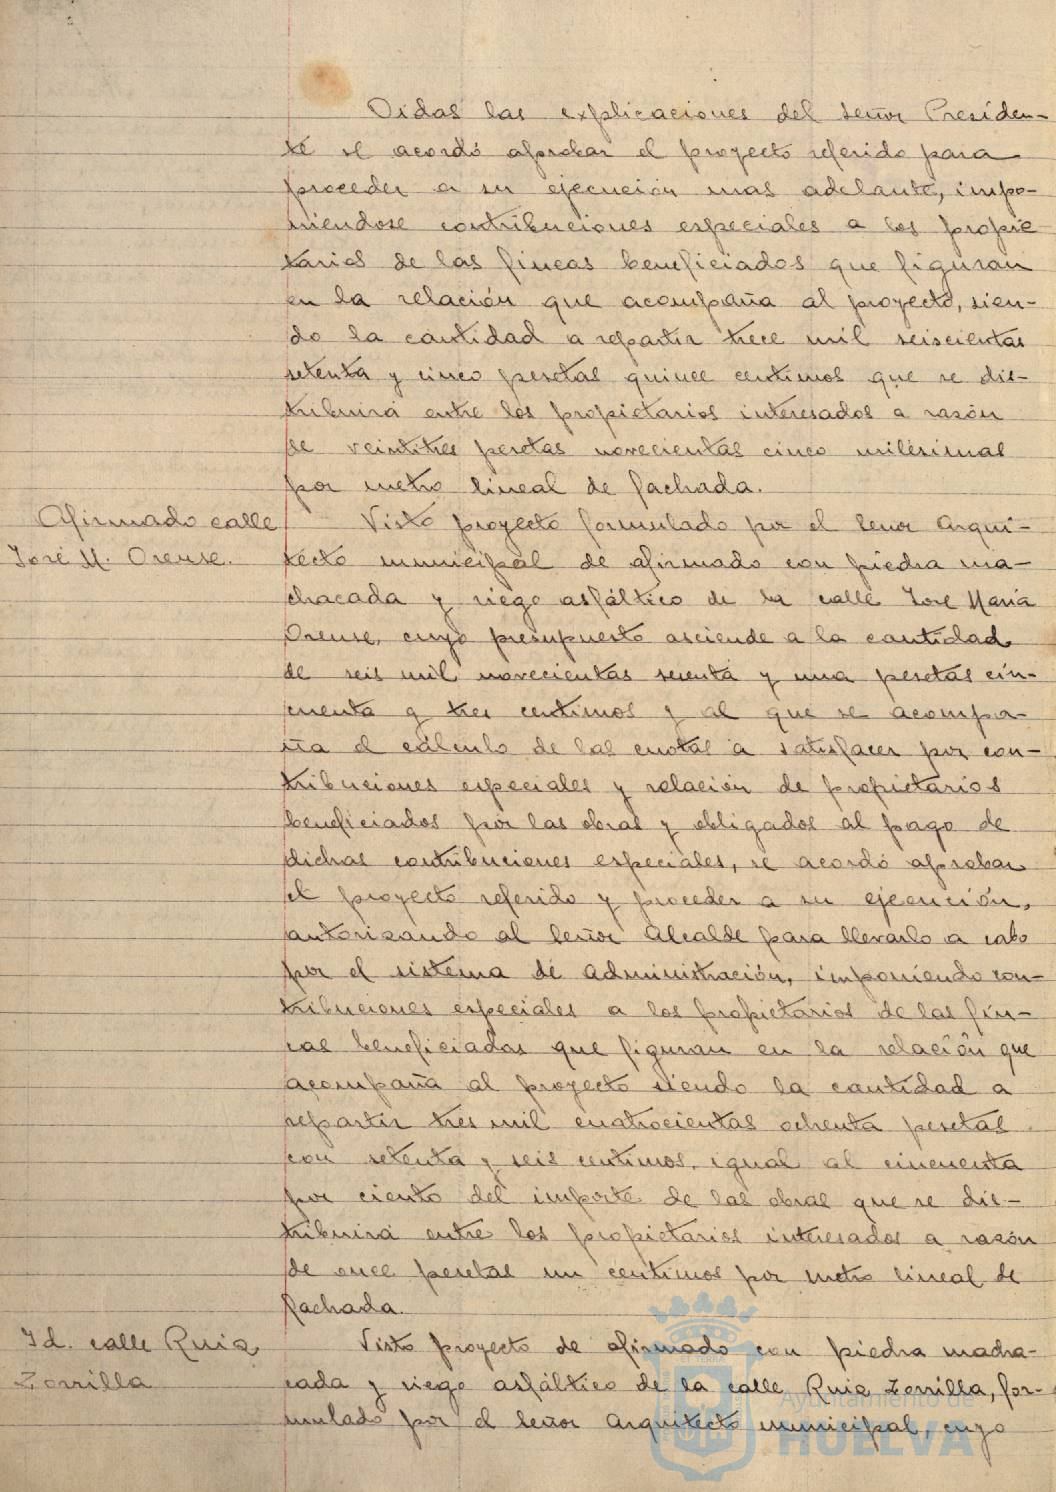 Oidas las explicaciones del señor Presiden-
te se acordó aprobar el proyecto referido para
proceder a su ejecución mas adelante, impo-
niendose contribuciones especiales a los propie
tarios de las fincas beneficiados que figuran
en la relación que acompaña al proyecto, sien-
do la cantidad a repartir trece mil seiscientas
setenta y cinco pesetas quince centimos que se dis-
tribuirá entre los propietarios interesados a razón
de veintitres pesetas novecientas cinco milésimas
por metro lineal de fachada.
Afirmado calle
José M. Orense.
Visto proyecto formulado por el señor Arqui-
tecto municipal de afirmado con piedra ma-
chacada y riego asfáltico de la calle José María
Orense, cuyo presupuesto asciende a la cantidad
de seis mil novecientas sesenta y una pesetas cin-
cuenta y tres centimos y al que se acompa-
ña el cálculo de las cuotas a satisfacer por con-
tribuciones especiales y relación de propietarios
beneficiados por las obras y obligados al pago de
dichas contribuciones especiales, se acordó aprobar
el proyecto referido y proceder a su ejecución,
autorizando al señor Alcalde para llevarlo a cabo
por el sistema de administración, imponiendo con-
tribuciones especiales a los propietarios de las fin-
cas beneficiadas que figuran en la relación que
acompaña al proyecto siendo la cantidad a
repartir tres mil cuatrocientas ochenta pesetas
con setenta y seis centimos, igual al cincuenta
por ciento del importe de las obras que se dis-
tribuirá entre los propietarios interesados a razón
de once pesetas un centimos por metro lineal de
fachada.
Id. calle Ruiz
Zorrilla
Visto proyecto de afirmado con piedra macha-
cada y riego asfáltico de la calle Ruiz Zorrilla, for-
mulado por el señor Arquitecto municipal, cuyo
Ayuntamiento de
HUELVA